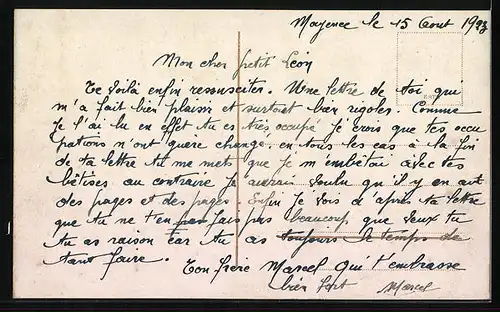 Mayence le 15 Aout 1923
Mon cher petit Léon
Te voilà enfin ressusciter. Une lettre de toi qui
m'a fait bien plaisir et surtout bien rigoler. Comme
je l'ai lu en effet tu es très occupé je crois que tes occu
pations n'ont guère change en tous les cas à la fin
de ta lettre tu me mets que je m'embêtai avec tes
bêtises au contraire j'aurais voulu qu'il y en aut
des pages et des pages. Enfin je vois d'après ta lettre
que tu ne t'en fais pas beaucoup, que veux tu
tu as raison car tu as toujours le temps de
tant faire.
Ton frère Marcel qui t'embrasse
bien fort Marcel